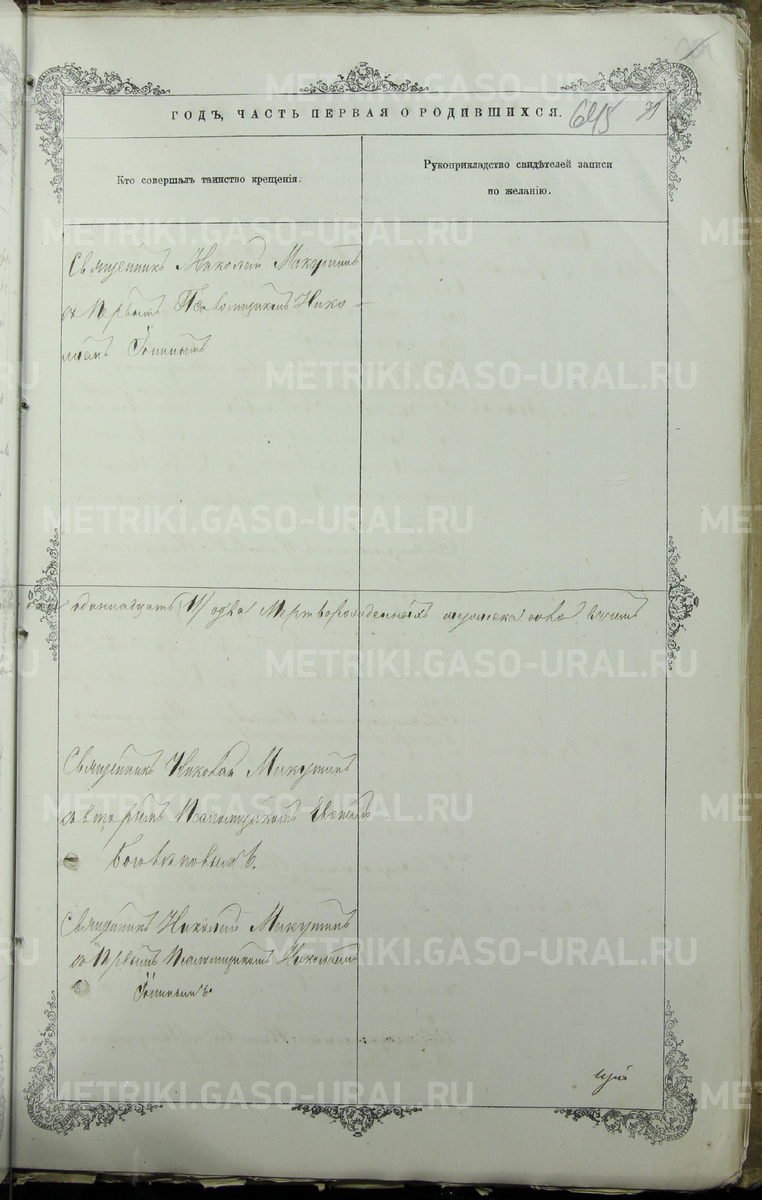 ГОДЪ, ЧАСТЬ ПЕРВАЯ О РОДИВШИХСЯ. 645 79
Кто совершалъ таинство крещенія.
Рукоприкладство свидѣтелей записи
по желанію.
Священникъ Николай Макушинъ
съ Первымъ Псаломщикомъ Нико-
лаемъ
одиннадцать 11/ одва Мертворожденныхъ мужеска
Священникъ Николай Макушинъ
со вторымъ Псаломщикомъ
Священникъ Николай Макушинъ
съ Первымъ Псаломщикомъ Николаемъ
METRIKI.GASO-URAL.RU